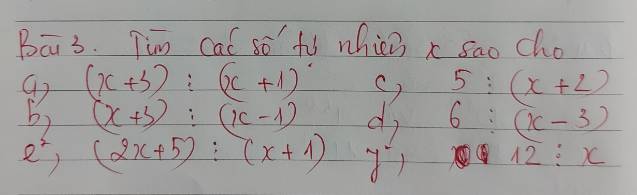 Bài 3. Tìm các số tự nhiên x sao cho
a, (x+3) ⋮ (x+1) c, 5 ⋮ (x+2)
b, (x+3) ⋮ (x-1) d, 6 ⋮ (x-3)
e, (2x+5) ⋮ (x+1) y, 12 ⋮ x